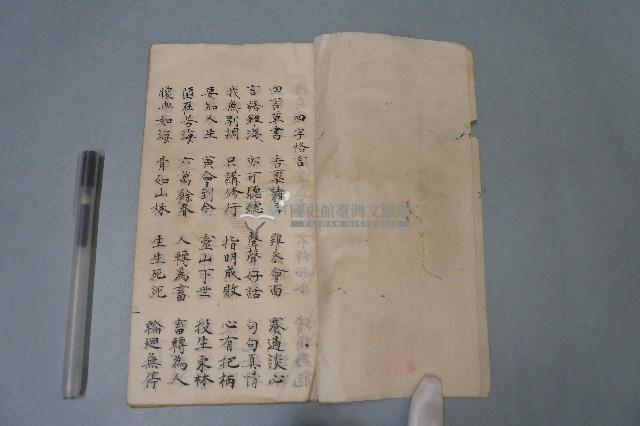 四字格言
四言草書 會面 賽過談心
言語雖淺 亦可聽聽 聲聲好話 句句真情
我無別調 只講修行 指明成敗 心有把柄
要知人生 寅會到今 靈山下世 投生東林
在苦海 六萬餘春 人轉為畜 畜轉為人
膿血如海 骨如山林 生生死死 輪迴無停
國史館臺灣文獻館
TAIWAN HISTORICA